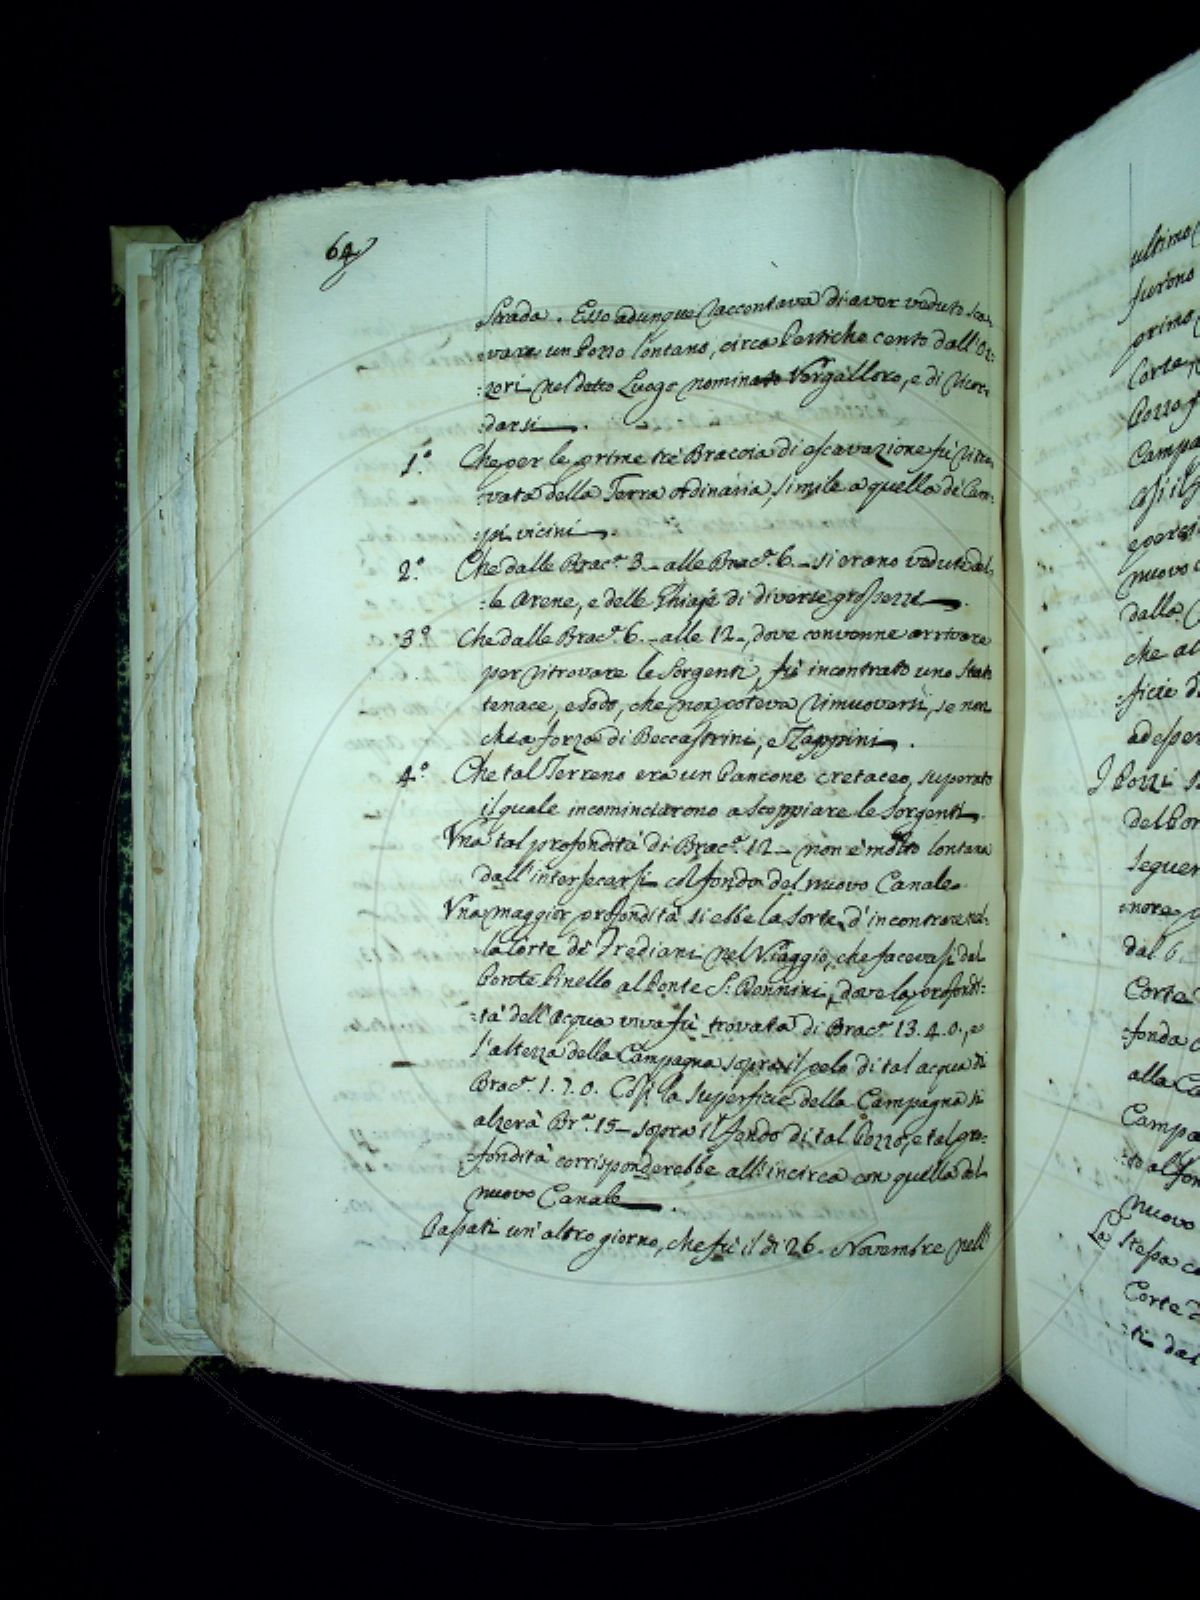 64
Strada. Esso adunque raccontava di aver veduto sca-
-vare un Pozzo lontano, circa Pertiche cento dall'Or-
-zeri nel detto Luogo nominato Vergalloro, e di ricor-
-darsi.
1.° Che per le prime trè Braccia di escavazione fù ritro-
-vata della Terra ordinaria, simile a quella de' Cam-
-pi vicini.
2.° Che dalle Brac.ª 3 – alle Brac.ª 6 – si erano vedute del-
-le Arene, e delle Ghiaje di diverse grossezze.
3.° Che dalle Brac.ª 6. – alle 12 –, dove convenne arrivare
per ritrovare le Sorgenti, fù incontrato uno Strato
tenace, e sodo, che non poteva rimuoversi, se non
che a forza di Beccastrini, e Zappini.
4.° Che tal Terreno era un Pancone cretaceo, superato
il quale incominciarono a scoppiare le Sorgenti.
Una tal profondità di Brac.ª 12 – non è molto lontana
dall'intersecarsi col fondo del nuovo Canale.
Una maggior profondità si ebbe la sorte d'incontrare nel-
-la Corte de' Frediani nel Viaggio, che facevasi dal
Ponte Pinello al Ponte S. Donnini, dove la profondi-
-tà dell'Acqua viva fù trovata di Brac.ª 13. 4. 0., e
l'altezza della Campagna sopra il pelo di tal acqua di
Brac.ª 1. 7. 0. Così la superficie della Campagna si
alzerà Br.ª 15 – sopra il fondo di tal Pozzo, e tal pro-
-fondità corrisponderebbe all'incirca con quella del
nuovo Canale.
Passati un'altro giorno, che fù il di 26. Novembre nell'
ultimo
furono
primo
Corte
Pozza
Campa
così il
e per
nuovo
dalla
che al
-ficie d
ad esper
I Pozzi s
del Pon
seguen
-nore
dal 6.
Corte
-fonda
alla Ca
Campa
-to al fon
nuovo
La stessa co
Corte
-ti dal